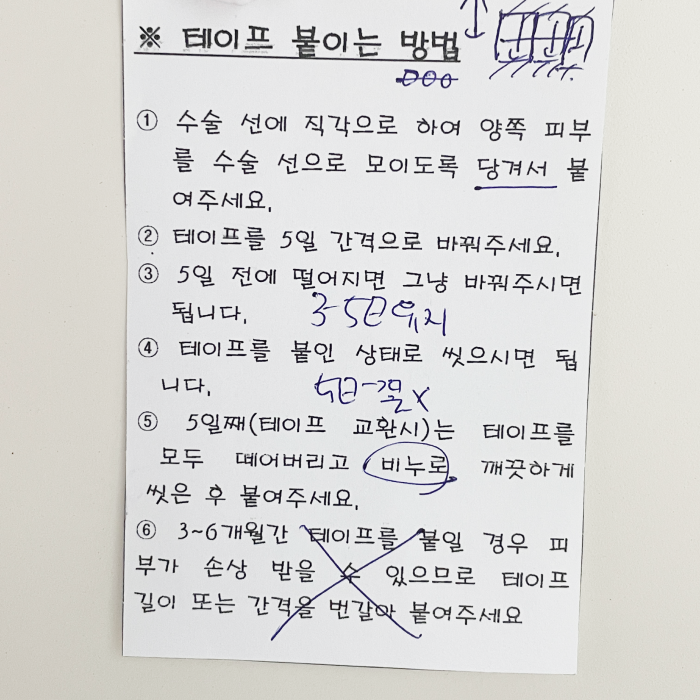 ※ 테이프 붙이는 방법
① 수술 선에 직각으로 하여 양쪽 피부
를 수술 선으로 모이도록 당겨서 붙
여주세요.
② 테이프를 5일 간격으로 바꿔주세요.
③ 5일 전에 떨어지면 그냥 바꿔주시면
됩니다. 3-5日 유지
④ 테이프를 붙인 상태로 씻으시면 됩
니다.
⑤ 5일째(테이프 교환시)는 테이프를
모두 떼어버리고 비누로 깨끗하게
씻은 후 붙여주세요.
⑥ 3~6개월간 테이프를 붙일 경우 피
부가 손상 받을 수 있으므로 테이프
길이 또는 간격을 번갈아 붙여주세요